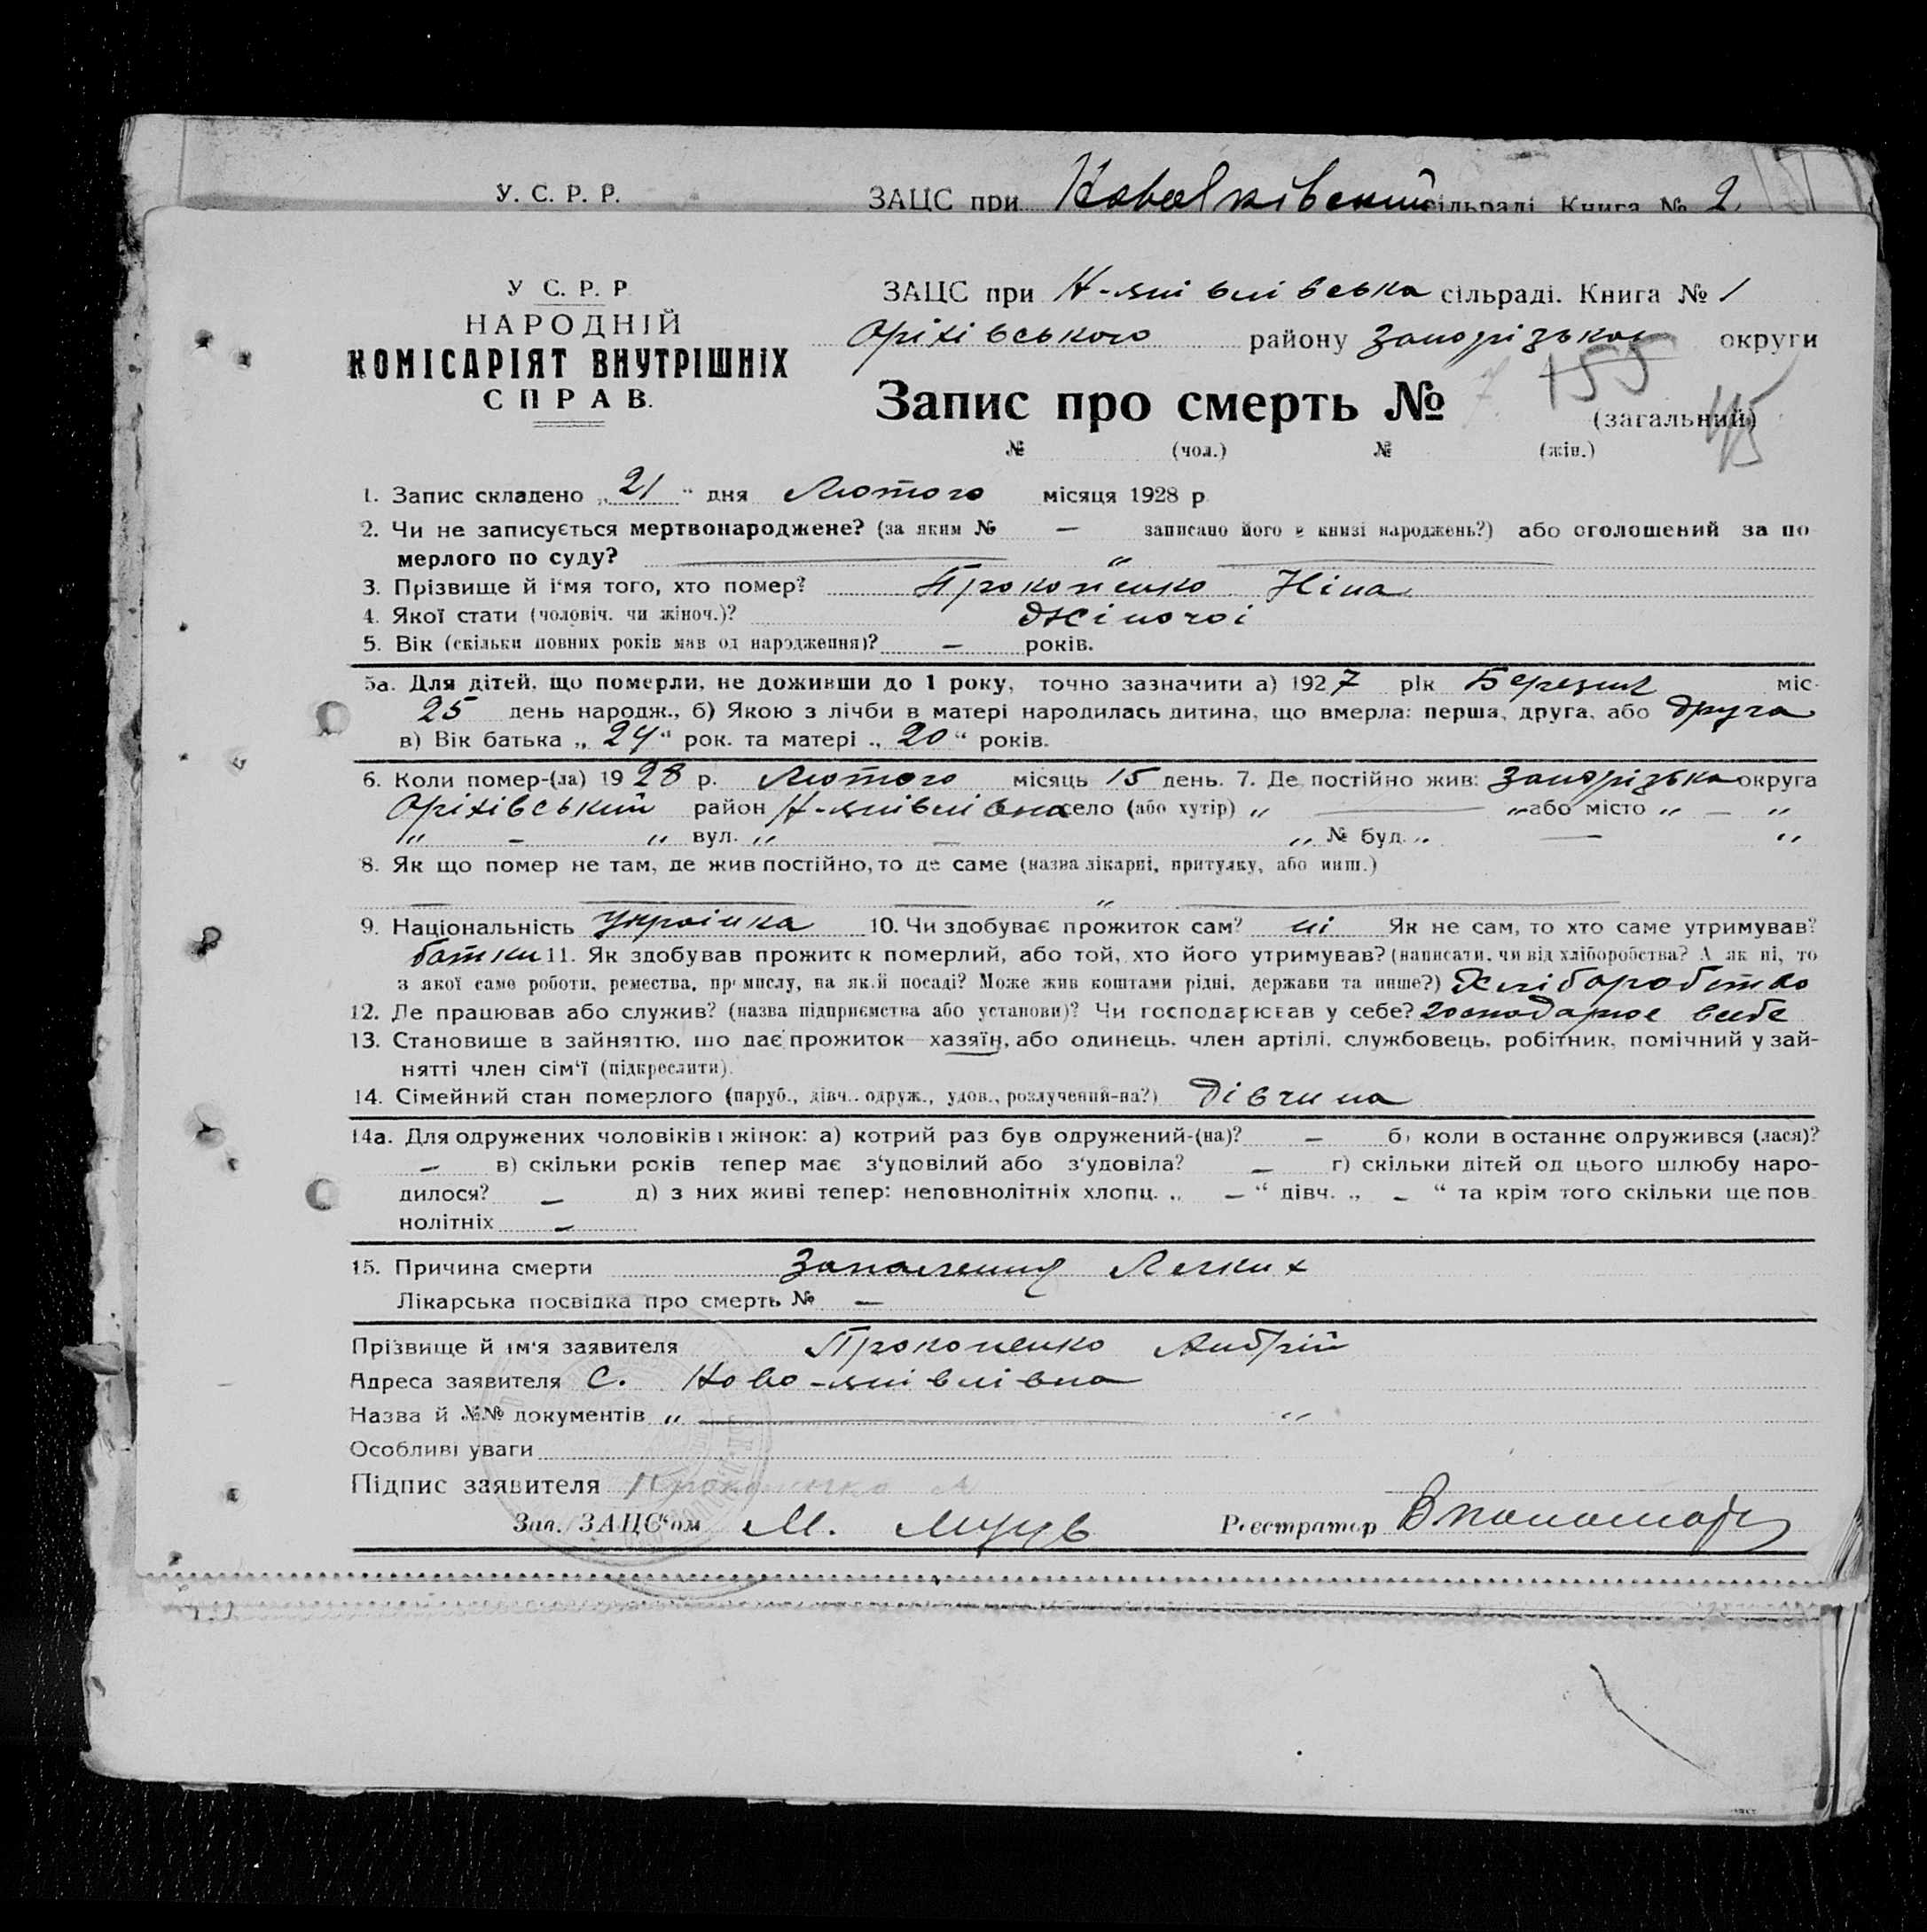 У. С. Р. Р.
ЗАЦС при сільраді. Книга № 2
У С. Р. Р
НАРОДНІЙ
КОМІСАРІЯТ ВНУТРІШНІХ
СПРАВ.
ЗАЦС при Н-янівлівська сільраді. Книга № 1
Оріхівського району Запорізької округи
Запис про смерть № 7. 155 (загальний) 45
№ (чол.) № (жін.)
1. Запис складено „21“ дня Лютого місяця 1928 р
2. Чи не записується мертвонароджене? (за яким № — записано його в книзі народжень?) або оголошений за по
мерлого по суду? — „ —
3. Прізвище й ім'я того, хто помер? Прокопенко Ніна
4. Якої стати (чоловіч. чи жіноч.)? Жіночої
5. Вік (скільки повних років мав од народження)? — років.
5а. Для дітей, що померли, не доживши до 1 року, точно зазначити а) 1927 рік Березня міс.
25 день народж., б) Якою з лічби в матері народилась дитина, що вмерла: перша, друга, або друга
в) Вік батька „24“ рок. та матері „20“ років.
6. Коли помер-(ла) 1928 р. Лютого місяць 15 день. 7. Де постійно жив: Запорізька округа
Оріхівський район Н-янівлівка село (або хутір) „ — „ або місто „ — „
„ — „ вул. „ — „ № буд. „ — „
8. Як що помер не там, де жив постійно, то де саме (назва лікарні, притулку, або инш.)
— — — „ —
9. Національність Українка 10. Чи здобуває прожиток сам? ні Як не сам, то хто саме утримував?
батьки 11. Як здобував прожиток померлий, або той, хто його утримував? (написати, чи від хліборобства? А як ні, то
з якої саме роботи, ремества, промислу, на якій посаді? Може жив коштами рідні, держави та инше?) Хліборобство
12. Де працював або служив? (назва підприємства або установи)? Чи господарював у себе? господарює в себе
13. Становище в зайняттю, що дає прожиток—хазяїн, або одинець, член артілі, службовець, робітник, помічний у зай-
нятті член сім'ї (підкреслити).
14. Сімейний стан померлого (паруб., дівч., одруж., удов., розлучений-на?) Дівчина
14а. Для одружених чоловіків і жінок: а) котрий раз був одружений-(на)? — б) коли в останнє одружився (лася)?
— в) скільки років тепер має з'удовілий або з'удовіла? — г) скільки дітей од цього шлюбу наро-
дилося? — д) з них живі тепер: неповнолітніх хлопц. „ — “ дівч. „ — “ та крім того скільки ще пов
нолітніх —
15. Причина смерти Запалення Легких
Лікарська посвідка про смерть № —
Прізвище й ім'я заявителя Прокопенко Андрій
Адреса заявителя С. Ново-янівлівка
Назва й №№ документів „ — „
Особливі уваги
Підпис заявителя Прокопенко А
Зав. ЗАЦС'ом М. Реєстратор